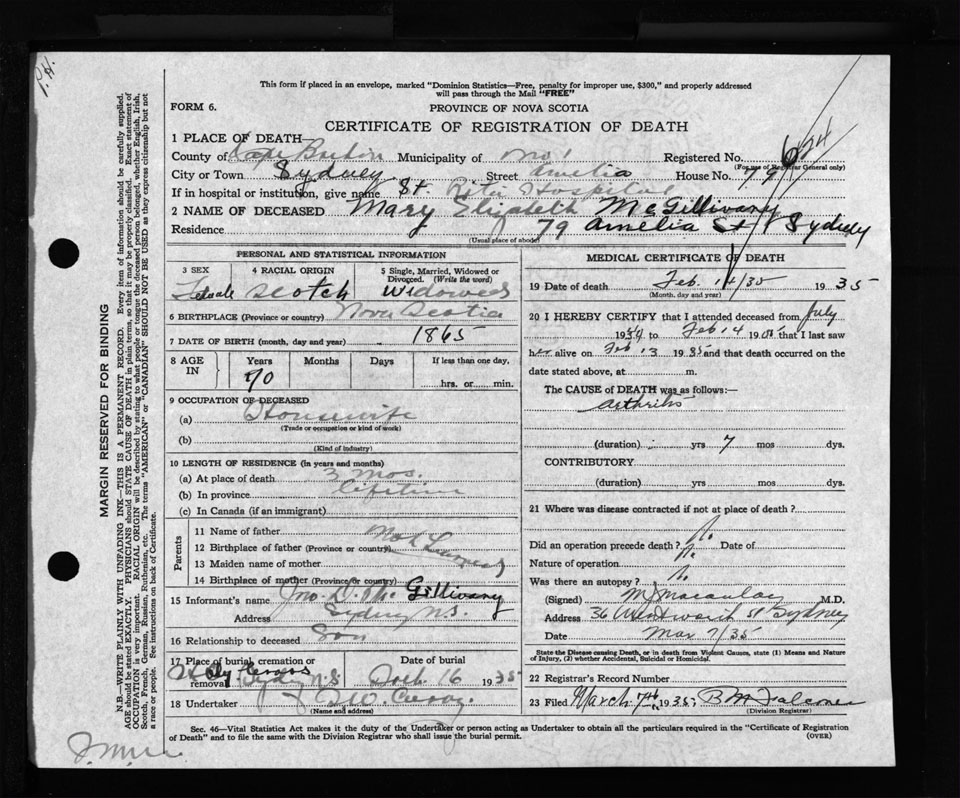 P. H.
This form if placed in an envelope, marked "Dominion Statistics—Free, penalty for improper use, $300," and properly addressed
will pass through the Mail "FREE"
FORM 6.
PROVINCE OF NOVA SCOTIA
CERTIFICATE OF REGISTRATION OF DEATH
1 PLACE OF DEATH
County of Cape Breton Municipality of Registered No. 624
(For use of Registrar General only)
City or Town Sydney Street Amelia House No. 79
If in hospital or institution, give name St. Rita Hospital
2 NAME OF DECEASED Mary Elizabeth McGillivany
Residence 79 Amelia St Sydney
(Usual place of abode)
PERSONAL AND STATISTICAL INFORMATION
3 SEX 4 RACIAL ORIGIN 5 Single, Married, Widowed or
Divorced. (Write the word)
Female Scotch Widowed
6 BIRTHPLACE (Province or country) Nova Scotia
7 DATE OF BIRTH (month, day and year) 1865
8 AGE IN Years Months Days If less than one day,
70 hrs. or min.
9 OCCUPATION OF DECEASED
(a) Housewife
(Trade or occupation or kind of work)
(b)
(Kind of industry)
10 LENGTH OF RESIDENCE (in years and months)
(a) At place of death 3 mos.
(b) In province lifetime
(c) In Canada (if an immigrant)
Parents
11 Name of father Not
12 Birthplace of father (Province or country)
13 Maiden name of mother
14 Birthplace of mother (Province or country)
15 Informant's name Jno. D. Mc Gillivany
Address Sydney N.S.
16 Relationship to deceased Son
17 Place of burial, cremation or removal Date of burial
Holy Cross Sydney N.S. 16 1935
18 Undertaker
(Name and address)
MEDICAL CERTIFICATE OF DEATH
19 Date of death Feb. 14/35 1935
(Month, day and year)
20 I HEREBY CERTIFY that I attended deceased from July
1934 to Feb 14 1935 that I last saw
her alive on Feb 13 1935 and that death occurred on the
date stated above, at m.
The CAUSE of DEATH was as follows:—
Arthritis
(duration) yrs 7 mos dys.
CONTRIBUTORY
(duration) yrs. mos. dys.
21 Where was disease contracted if not at place of death?
Did an operation precede death? No. Date of
Nature of operation N.
Was there an autopsy? No.
(Signed) M J Macaulay M.D.
Address 36 Wentworth St Sydney
Date Mar 7/35
State the Disease causing Death, or in death from Violent Causes, state (1) Means and
Nature of Injury, (2) whether Accidental, Suicidal or Homicidal.
22 Registrar's Record Number
23 Filed March 7th 1935;
(Division Registrar)
Sec. 46—Vital Statistics Act makes it the duty of the Undertaker or person acting as Undertaker to obtain all the particulars required in the "Certificate of Registration
of Death" and to file the same with the Division Registrar who shall issue the burial permit. (OVER)
MARGIN RESERVED FOR BINDING
N.B.—WRITE PLAINLY WITH UNFADING INK—THIS IS A PERMANENT RECORD. Every item of information should be carefully supplied.
AGE should be stated EXACTLY. PHYSICIANS should STATE CAUSE OF DEATH in plain terms, so that it may be properly classified. Exact statement of
OCCUPATION is very important. RACIAL ORIGIN will be described by stating to what people or tongue the deceased person belonged, whether English, Irish,
Scotch, French, German, Russian, Ruthenian, etc. The terms "AMERICAN" or "CANADIAN" SHOULD NOT BE USED as they express citizenship but not
a race or people. See instructions on back of Certificate.